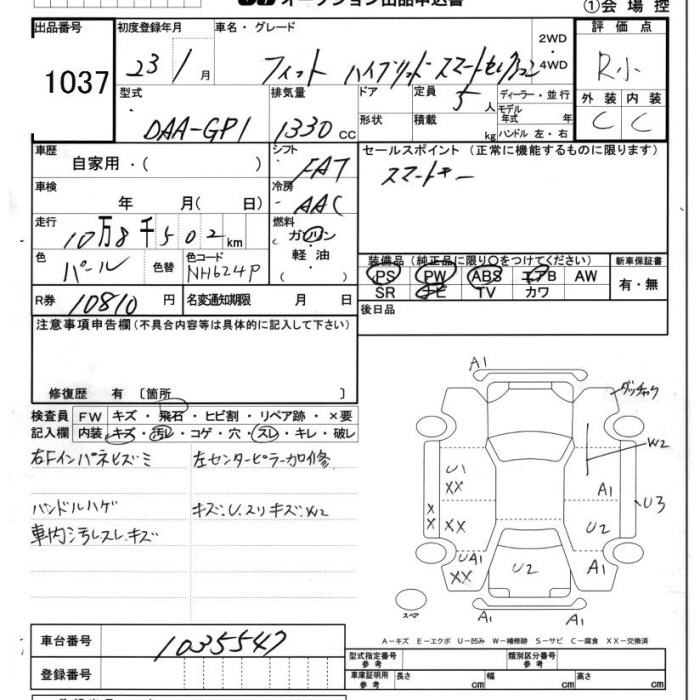 オークション出品申込書
①会場控
出品番号
1037
初度登録年月
23/1月
車名・グレード
フィット ハイブリッド スマートセレクション
2WD
・
4WD
評価点
R小
型式
DAA-GP1
排気量
1330cc
ドア
形状
定員
5人
積載
kg
ディーラー・並行
モデル年式 年
ハンドル 左・右
外装 内装
C C
車歴
自家用・( )
シフト
FAT
セールスポイント (正常に機能するものに限ります)
スマートキー
車検
年 月( 日)
冷房
AAC
走行
10万8千502km
燃料
ガソリン
軽油
( ・ )
色
パール
色替
色コード
NH624P
装備品 (純正品に限り○をつけてください)
PS PW ABS エアB AW
SR ナビ TV カワ
新車保証書
有・無
R券
10810円
名変通知期限 月 日
後日品
注意事項申告欄(不具合内容等は具体的に記入して下さい)
修復歴 有 〔箇所 〕
検査員記入欄
FW キズ・飛石・ヒビ割・リペア跡・×要
内装 キズ・汚レ・コゲ・穴・スレ・キレ・破レ
右Fインパネヒズミ
左センターピラー加修
ハンドルハゲ
キズ.U.スリキズ.W2
車内汚レスレ.キズ
A1
ダッチャク
W2
U1
XX
A1
U3
X
X XX
U2
UA1
XX
U2
A1
A1 A1
スペア
A-キズ E-エクボ U-凹み W-補修跡 S-サビ C-腐食 XX-交換済
車台番号
1035547
登録番号
型式指定番号
参考
類別区分番号
参考
車庫証明用
参考
長さ cm
幅 cm
高さ cm